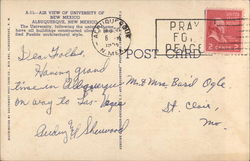 A-11—AIR VIEW OF UNIVERSITY OF
NEW MEXICO
ALBUQUERQUE, NEW MEXICO
The University, following the
have all buildings constructed
fied Pueblo architectural style.
ALBUQUERQUE
PRAY
FOR
PEACE
POST CARD
Dear Folks
Having grand
time in Albuquerque
on way to Las Vegas
Audrey & Sherwood
Mr & Mrs. Basil Ogle
St. Clair,
Mo.